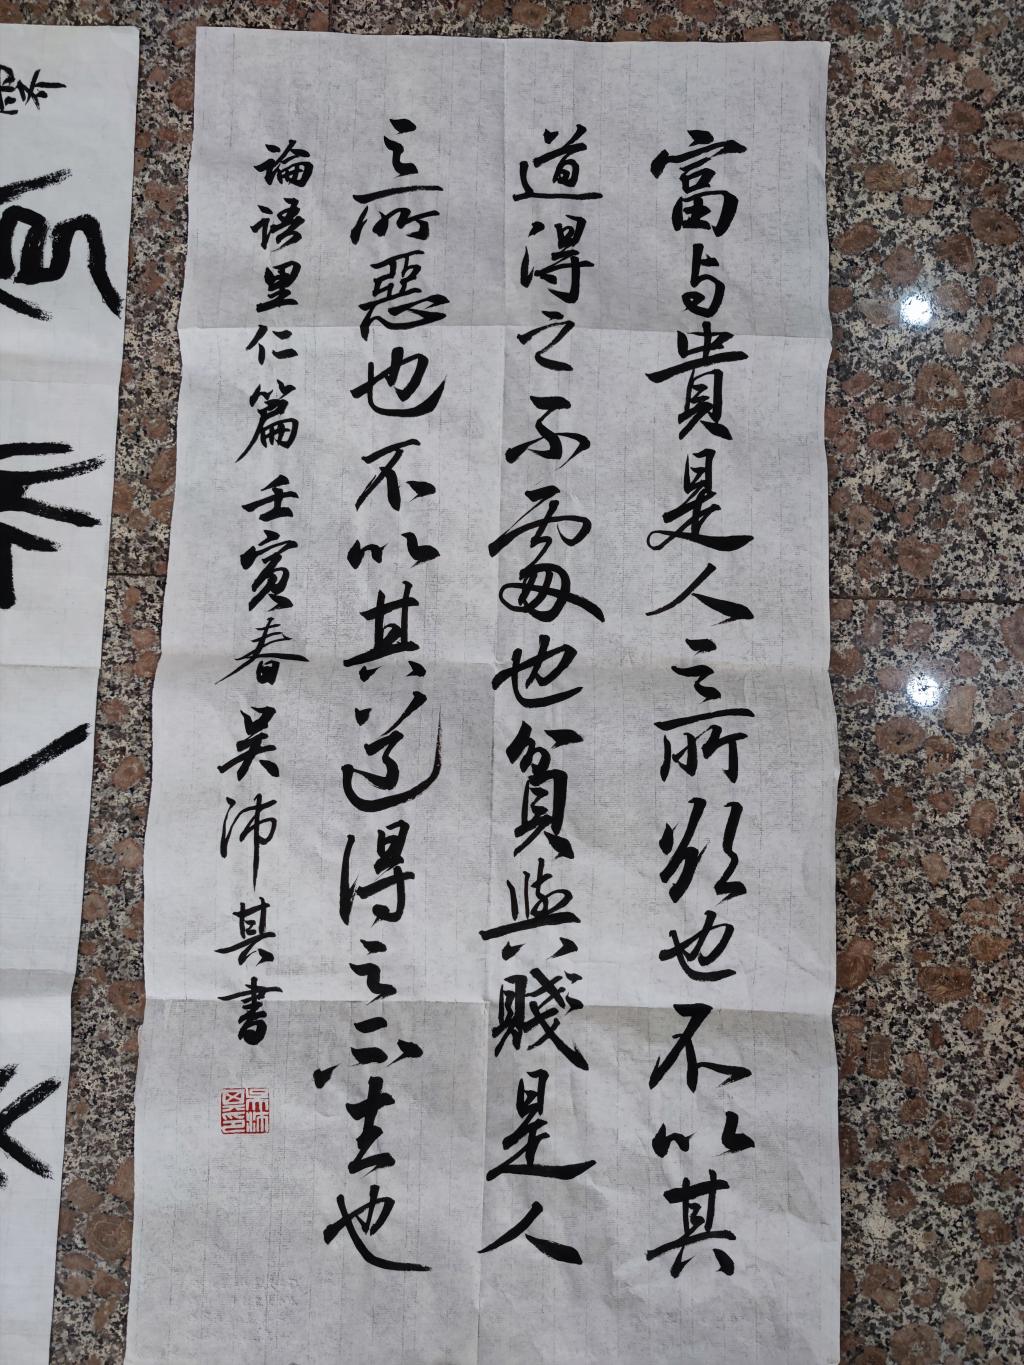 富与貴是人之所欲也不以其
道得之不處也貧與賤是人
之所惡也不以其道得之不去也
論語里仁篇壬寅春吳沛其書